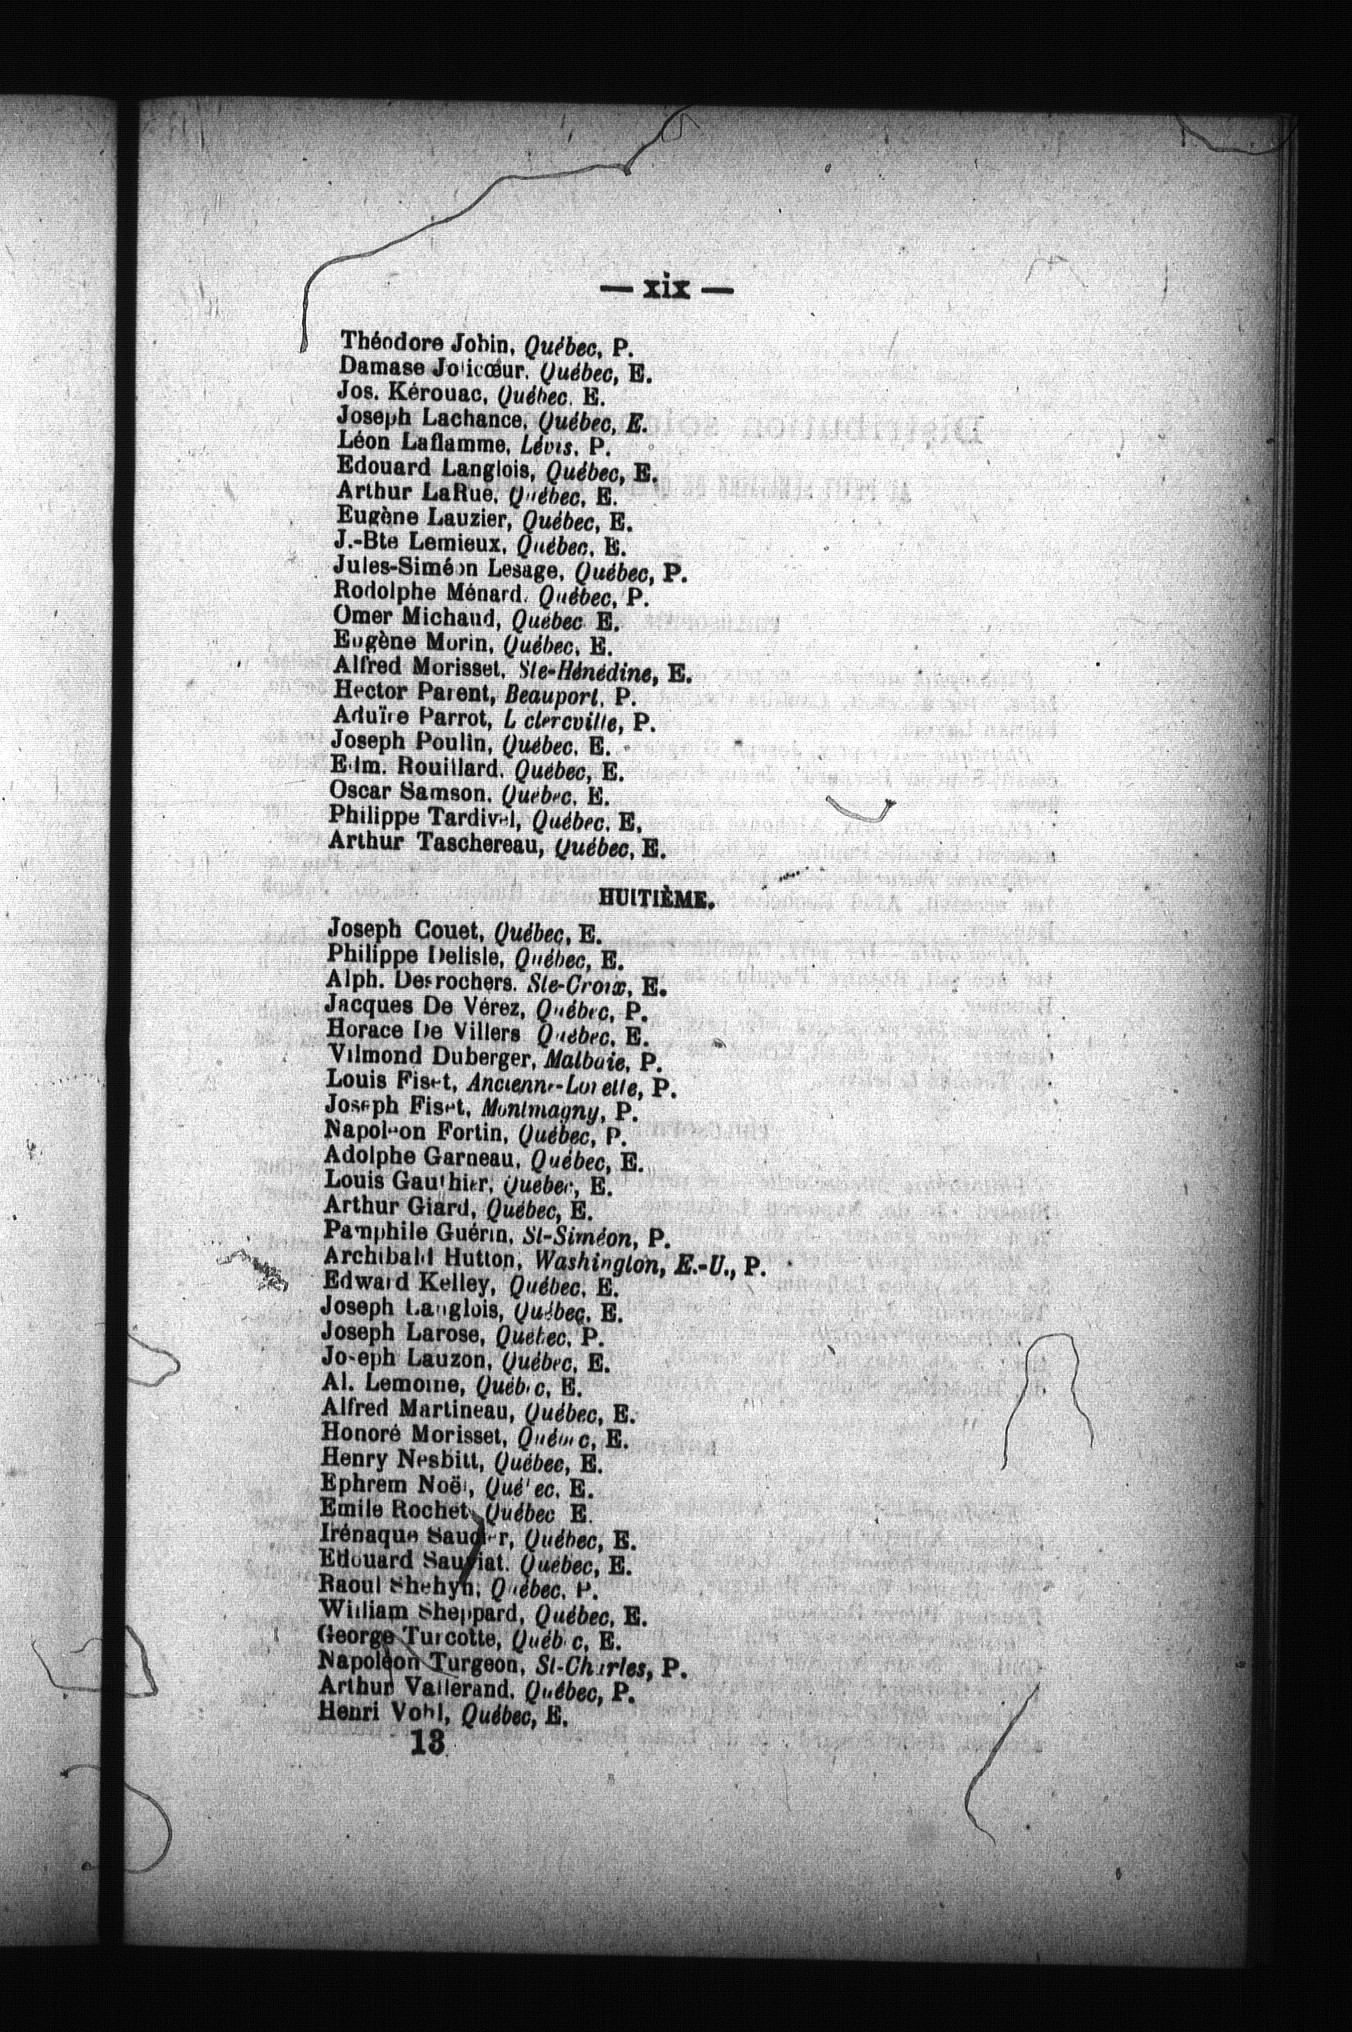 — xix —
Théodore Jobin, Québec, P.
Damase Jolicœur, Québec, E.
Jos. Kérouac, Québec, E.
Joseph Lachance, Québec, E.
Léon Laflamme, Lévis, P.
Edouard Langlois, Québec, E.
Arthur LaRue, Québec, E.
Eugène Lauzier, Québec, E.
J.-Bte Lemieux, Québec, E.
Jules-Siméon Lesage, Québec, P.
Rodolphe Ménard, Québec, P.
Omer Michaud, Québec E.
Eugène Morin, Québec, E.
Alfred Morisset, Ste-Hénédine, E.
Hector Parent, Beauport, P.
Aduïre Parrot, Leclercville, P.
Joseph Poulin, Québec, E.
Edm. Rouillard, Québec, E.
Oscar Samson, Québec, E.
Philippe Tardivel, Québec, E.
Arthur Taschereau, Québec, E.
HUITIÈME.
Joseph Couet, Québec, E.
Philippe Delisle, Québec, E.
Alph. Desrochers, Ste-Croix, E.
Jacques De Vérez, Québec, P.
Horace De Villers Québec, E.
Vilmond Duberger, Malbaie, P.
Louis Fiset, Ancienne-Lorette, P.
Joseph Fiset, Montmagny, P.
Napoleon Fortin, Québec, P.
Adolphe Garneau, Québec, E.
Louis Gauthier, Québec, E.
Arthur Giard, Québec, E.
Pamphile Guérin, St-Siméon, P.
Archibald Hutton, Washington, E.-U., P.
Edward Kelley, Québec, E.
Joseph Langlois, Québec, E.
Joseph Larose, Québec, P.
Joseph Lauzon, Québec, E.
Al. Lemoine, Québec, E.
Alfred Martineau, Québec, E.
Honoré Morisset, Québec, E.
Henry Nesbitt, Québec, E.
Ephrem Noël, Québec, E.
Emile Rochet, Québec E.
Irénaque Saucier, Québec, E.
Edouard Sauviat, Québec, E.
Raoul Shehyn, Québec, P.
William Sheppard, Québec, E.
George Turcotte, Québec, E.
Napoléon Turgeon, St-Charles, P.
Arthur Vallerand, Québec, P.
Henri Vohl, Québec, E.
13